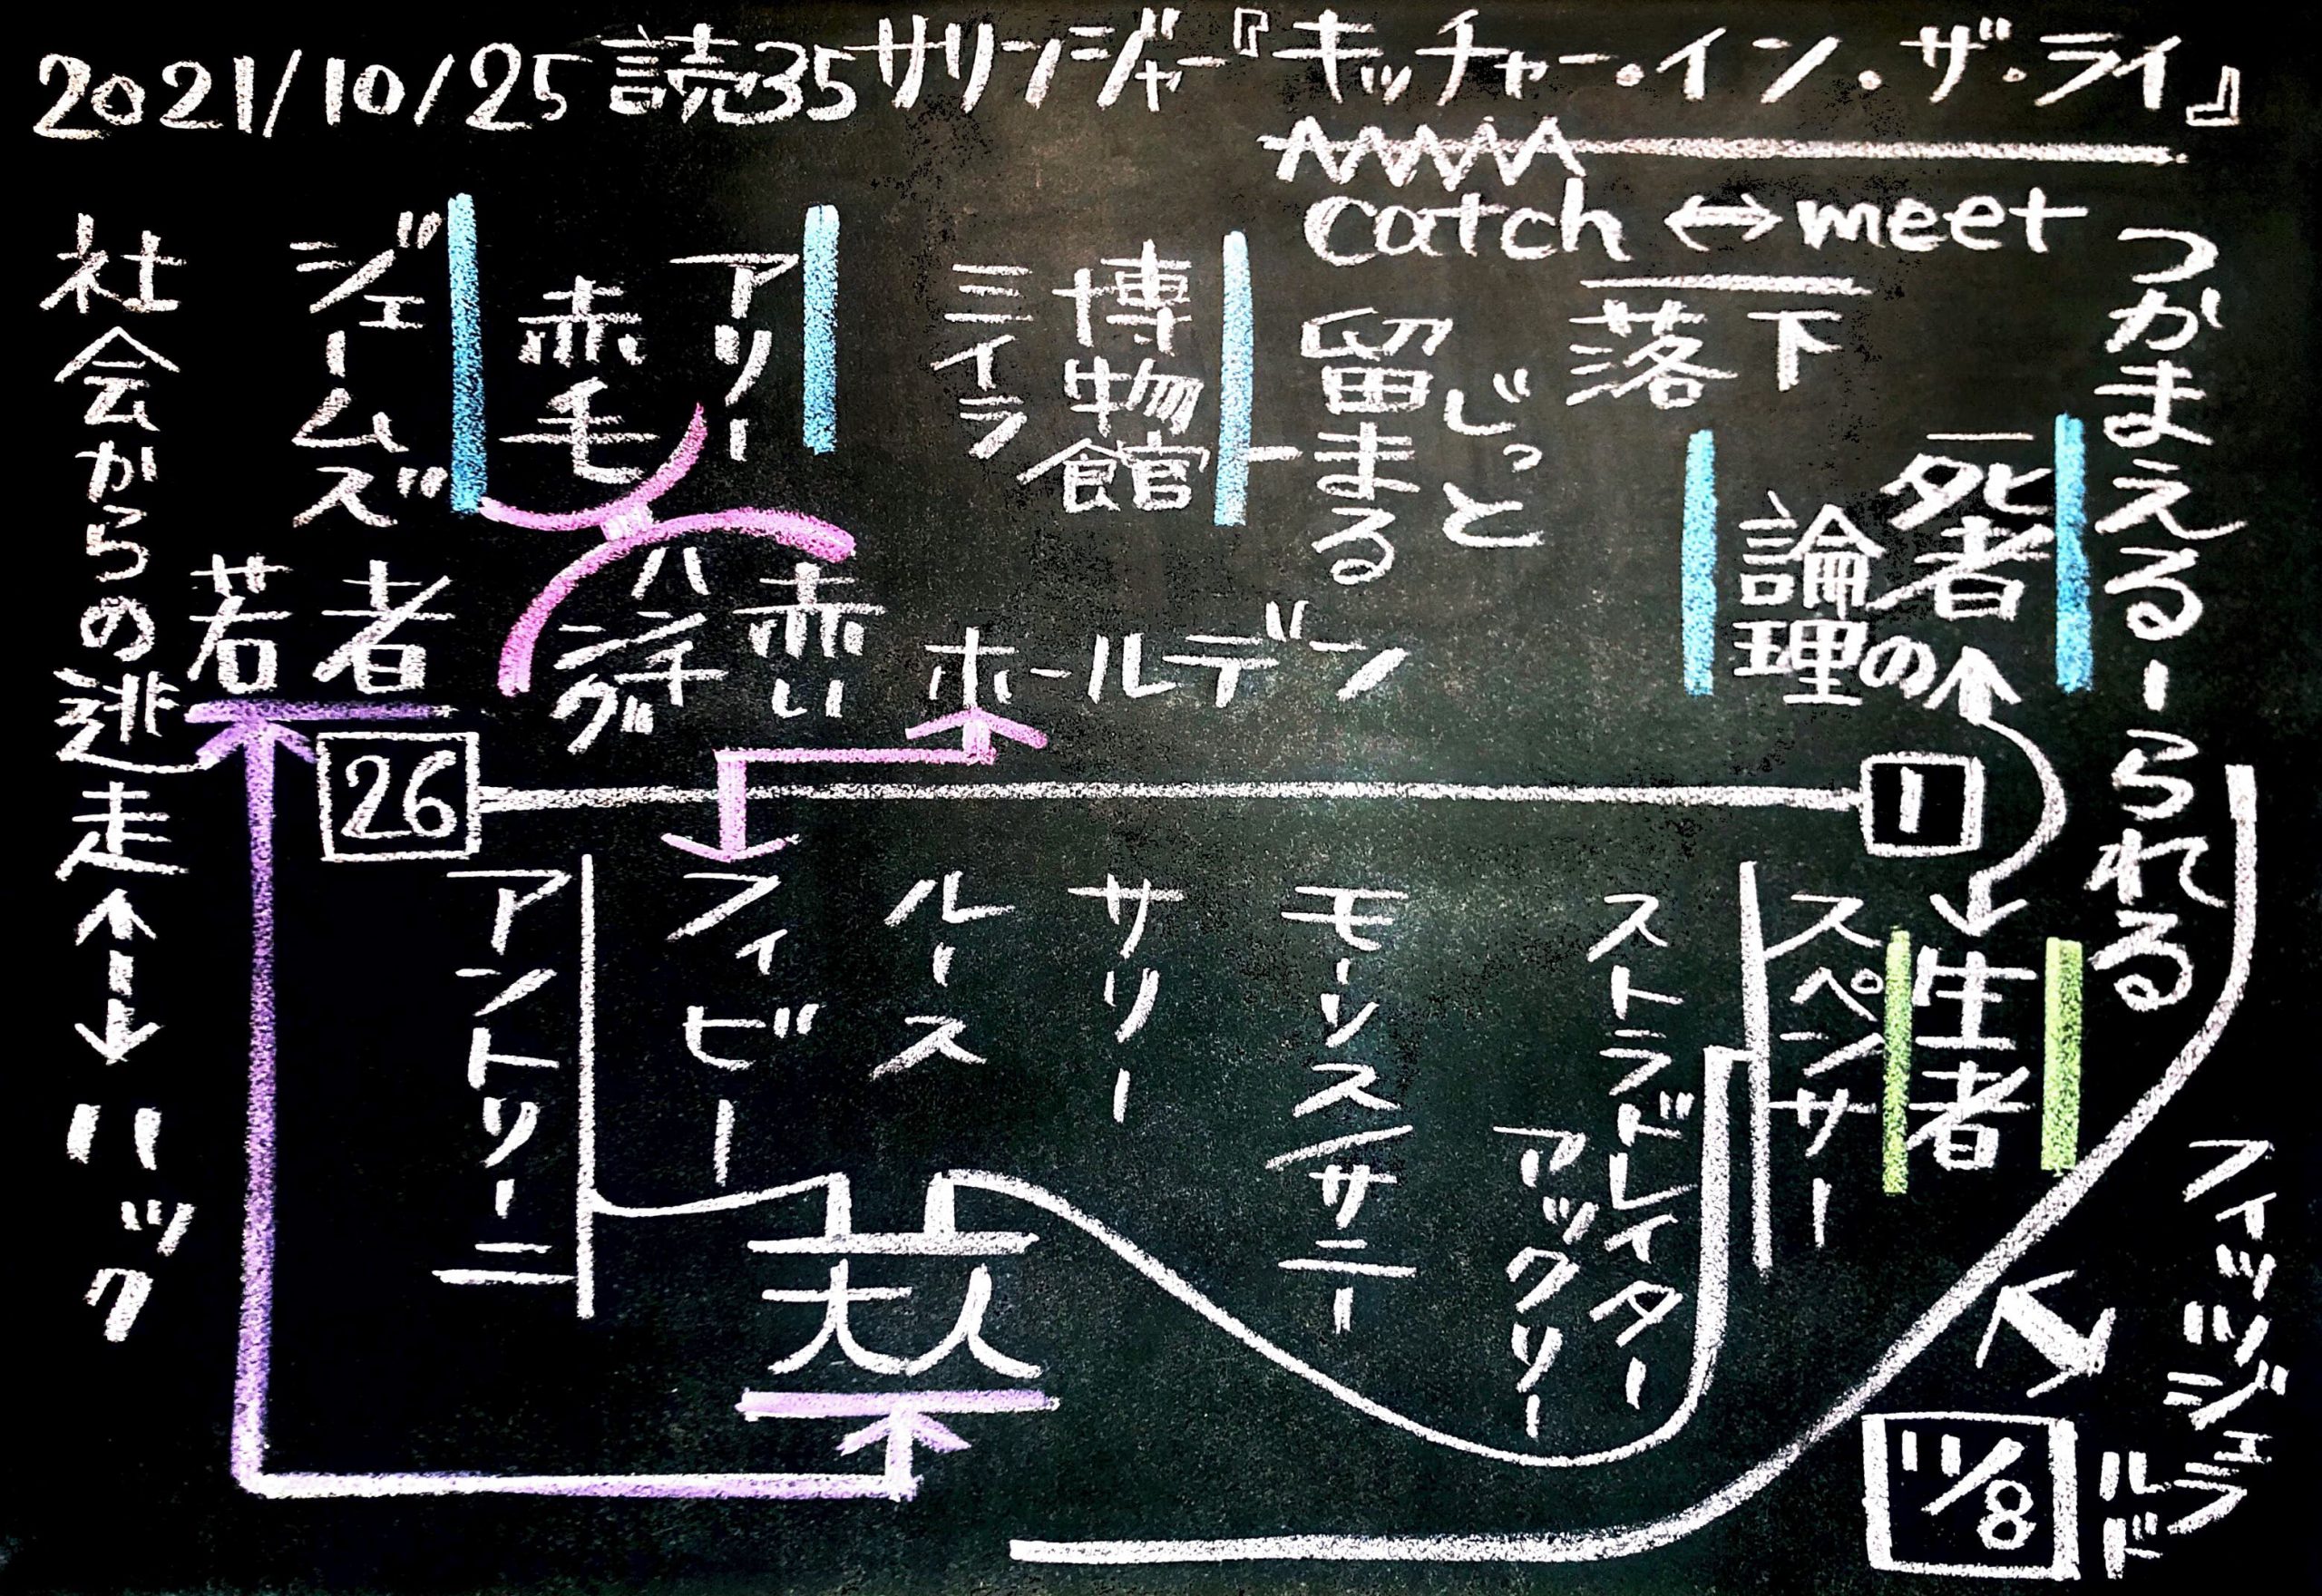 2021/10/25 読35 サリンジャー『キャッチャー・イン・ザ・ライ』
catch ↔ meet
つかまえる ー られる
落下
じっと
留まる
博物館
ミイラ
死者の
論理
アリー
赤毛
赤い
ハンチング
ジェームズ
若者
社会からの逃走 ↔ ハック
ホールデン
1
26
生者
スペンサー
ストラドレイター
アックリー
モーリス/サニー
サリー
ルース
フィビー
アントリーニ
大人
フィッツジェラルド
11/8